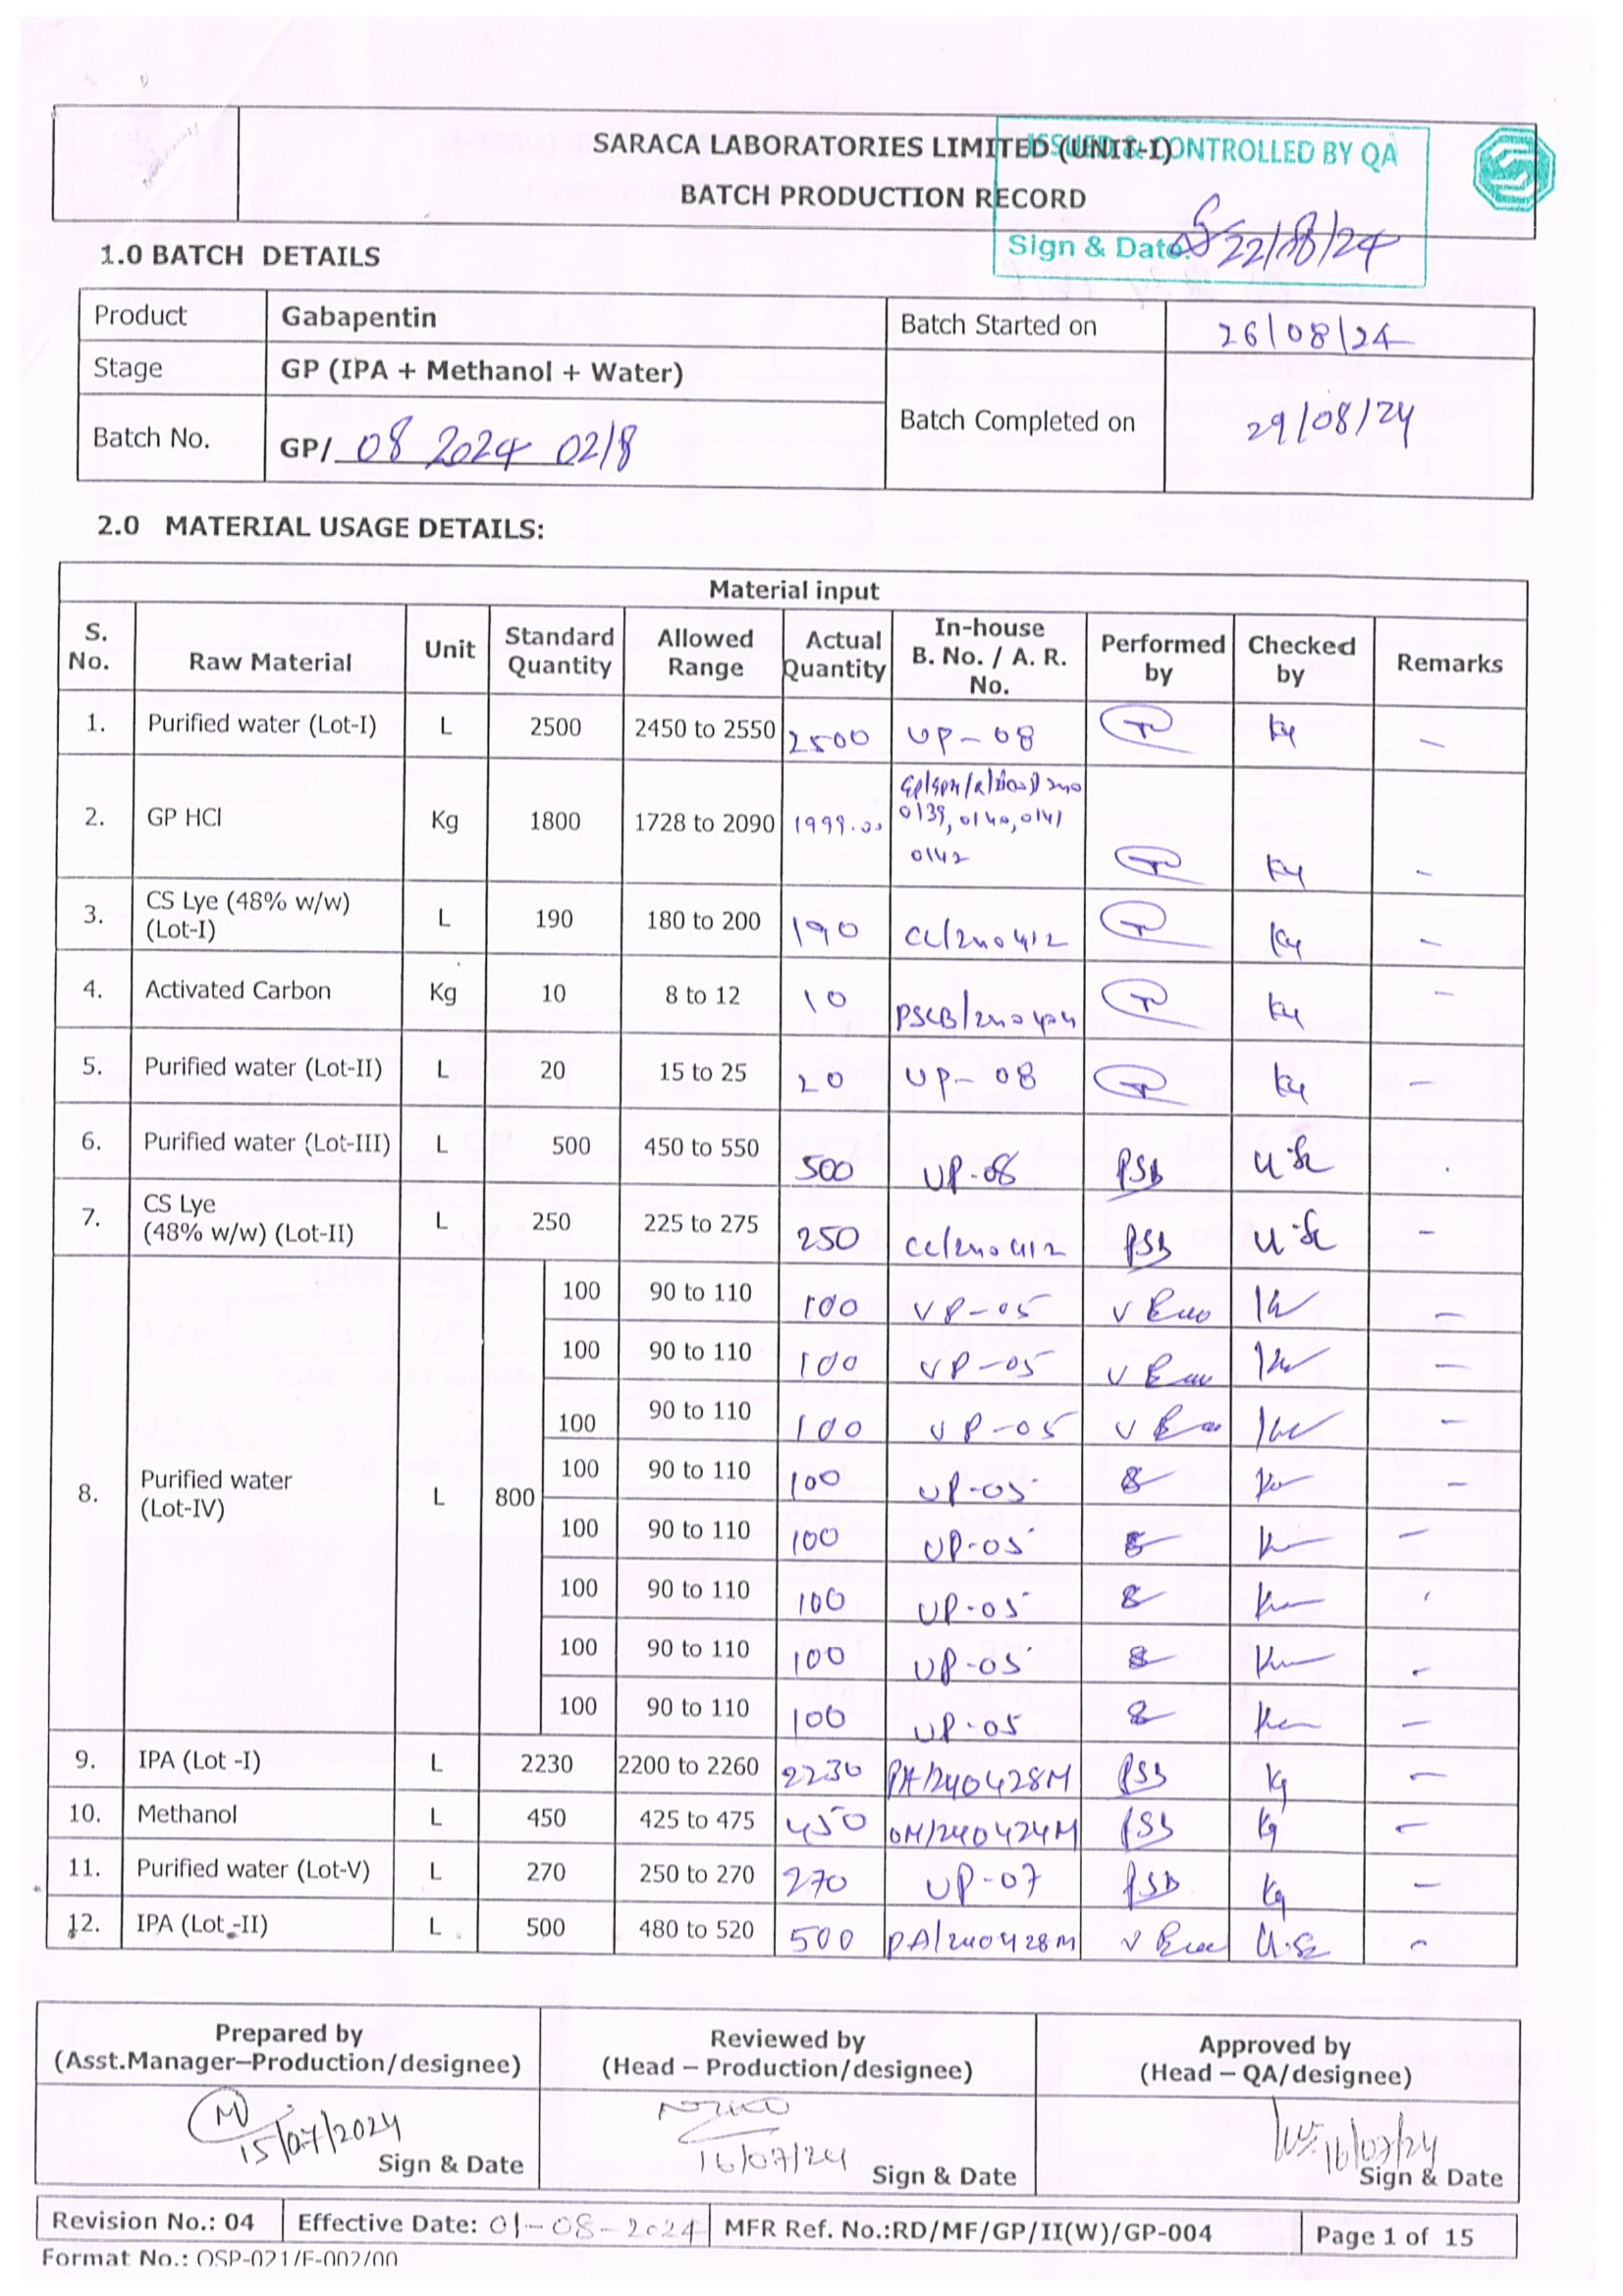 SARACA LABORATORIES LIMITED (UNIT-I)
BATCH PRODUCTION RECORD
ISSUED & CONTROLLED BY QA
Sign & Date: 22/08/24
1.0 BATCH DETAILS
Product Gabapentin Batch Started on 26/08/24
Stage GP (IPA + Methanol + Water)
Batch No. GP/ 08 2024 02/8 Batch Completed on 29/08/24
2.0 MATERIAL USAGE DETAILS:
Material input
S. No. Raw Material Unit Standard Quantity Allowed Range Actual Quantity In-house B. No. / A. R. No. Performed by Checked by Remarks
1. Purified water (Lot-I) L 2500 2450 to 2550 2500 UP-08 –
2. GP HCl Kg 1800 1728 to 2090 1999.00 0139, 0140, 0141 0142 –
3. CS Lye (48% w/w) (Lot-I) L 190 180 to 200 190 CL/240412 –
4. Activated Carbon Kg 10 8 to 12 10 PSCB/240404 –
5. Purified water (Lot-II) L 20 15 to 25 20 UP-08 –
6. Purified water (Lot-III) L 500 450 to 550 500 UP-08 PSB
7. CS Lye (48% w/w) (Lot-II) L 250 225 to 275 250 CL/240412 PSB –
8. Purified water (Lot-IV) L 800
100 90 to 110 100 UP-05 –
100 90 to 110 100 UP-05 –
100 90 to 110 100 UP-05 –
100 90 to 110 100 UP-05 –
100 90 to 110 100 UP-05 –
100 90 to 110 100 UP-05
100 90 to 110 100 UP-05 –
100 90 to 110 100 UP-05 –
9. IPA (Lot -I) L 2230 2200 to 2260 2230 PA/240428M PSB –
10. Methanol L 450 425 to 475 450 OM/240424M PSB –
11. Purified water (Lot-V) L 270 250 to 270 270 UP-07 PSB –
12. IPA (Lot -II) L 500 480 to 520 500 PA/240428M –
Prepared by (Asst.Manager–Production/designee) Reviewed by (Head – Production/designee) Approved by (Head – QA/designee)
15/07/2024 Sign & Date 16/07/24 Sign & Date 16/07/24 Sign & Date
Revision No.: 04 Effective Date: 01-08-2024 MFR Ref. No.:RD/MF/GP/II(W)/GP-004 Page 1 of 15
Format No.: QSP-021/F-002/00